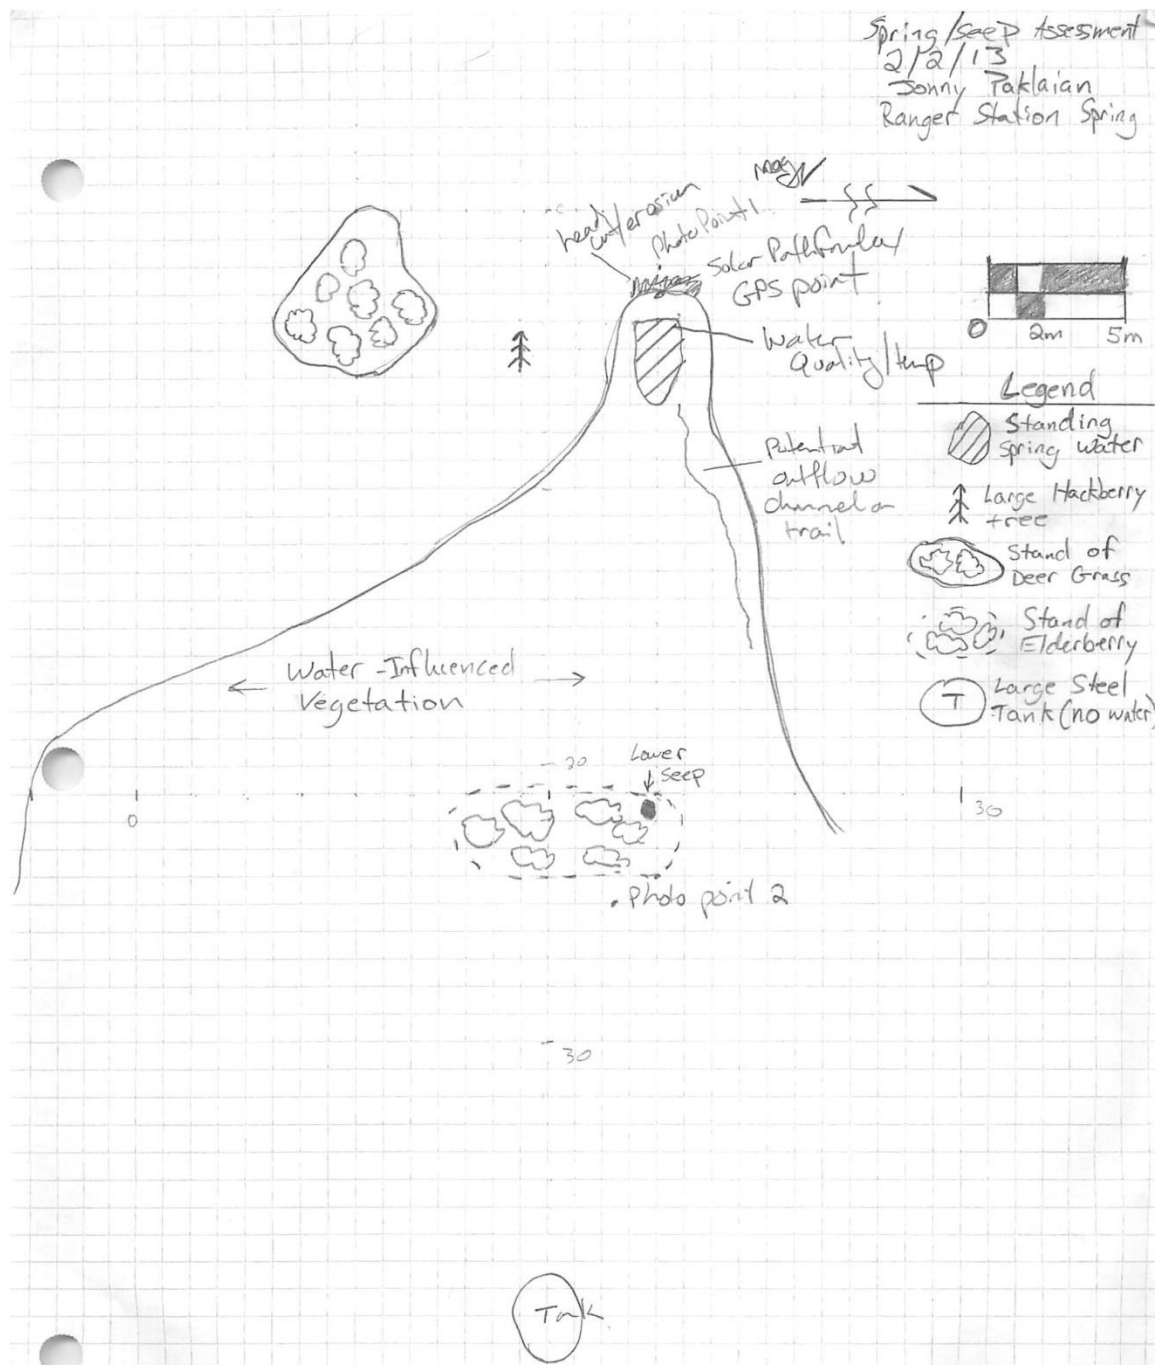 Spring/Seep Assessment
2/2/13
Jonny Paklaian
Ranger Station Spring
Mag N
head
cut/erosion
Photo Point 1
Solar Pathfinder/
GPS point
Water
Quality/temp
0
2m
5m
Legend
Standing
Spring Water
Large Hackberry
tree
Stand of
Deer Grass
Stand of
Elderberry
T
Large Steel
Tank (no water)
Potential
outflow
channel on
trail
Water-Influenced
Vegetation
20
Lower
Seep
0
30
Photo point 2
30
Tank